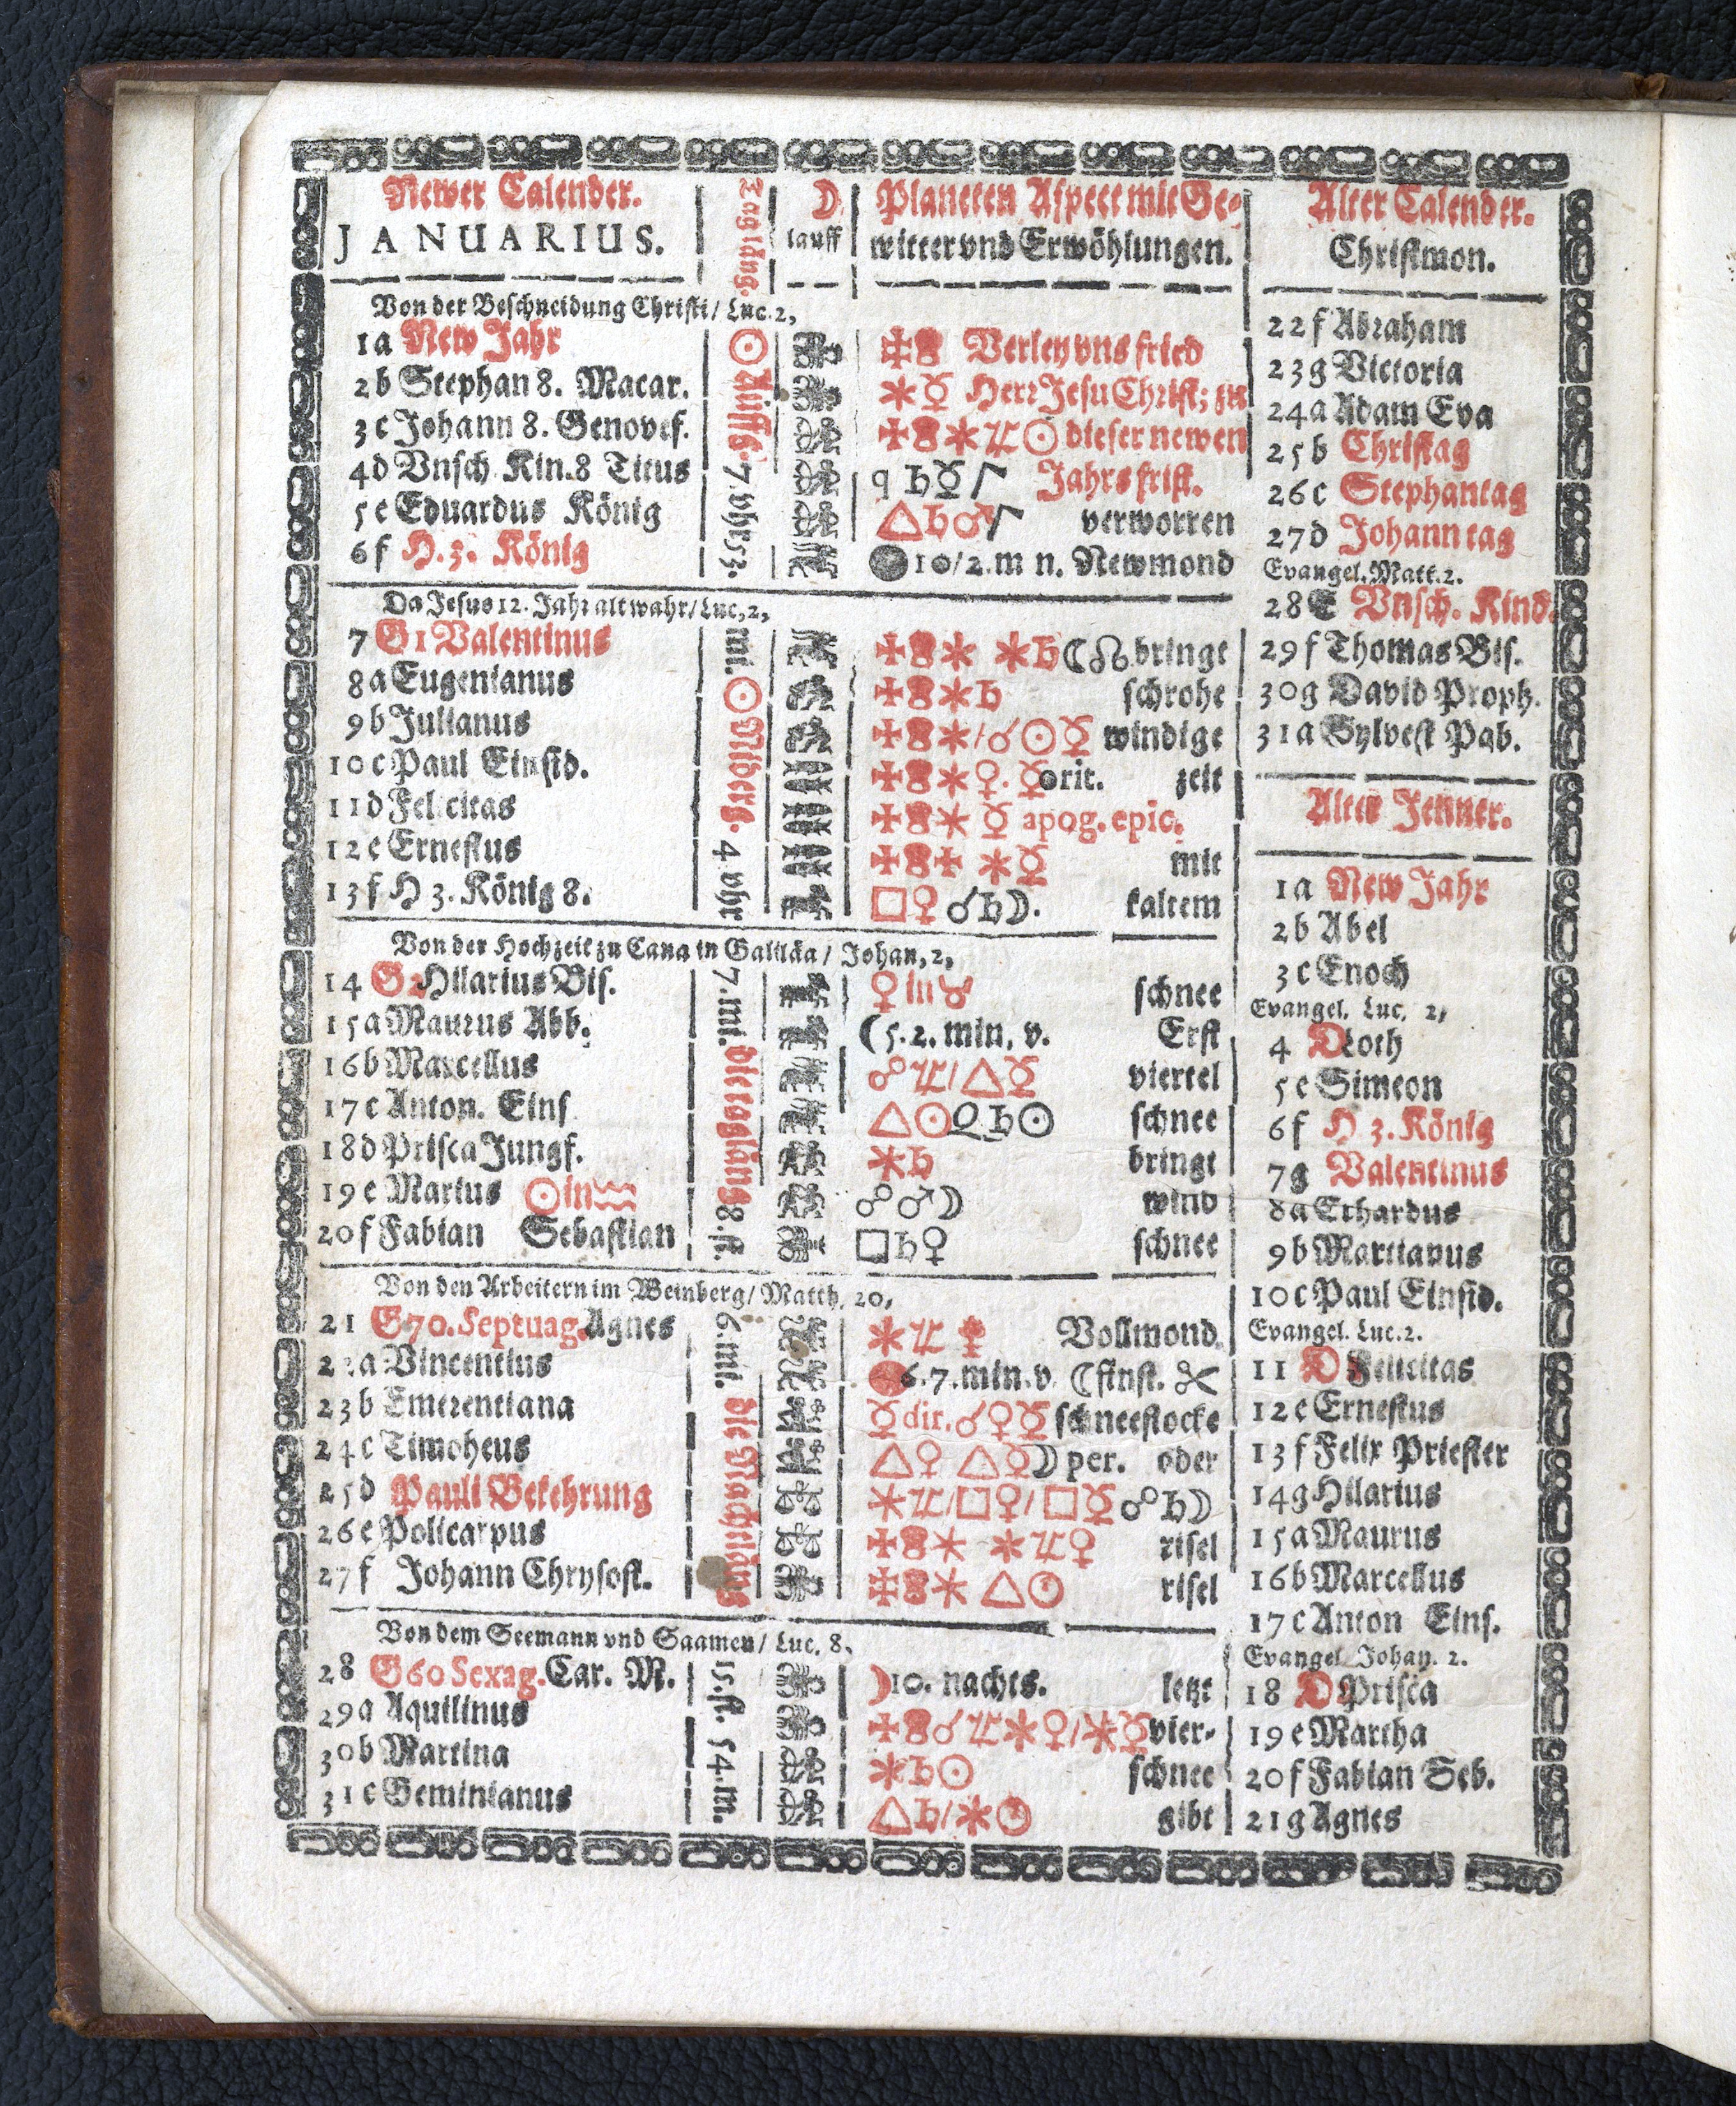 Newer Calender.
JANUARIUS.
Tagläng.
☽
lauff
Planeten Aspect mit Ge-
witter vnd Erwöhlungen.
Alter Calender.
Christmon.
Von der Beschneidung Christi / Luc. 2,
1 a New Jahr
2 b Stephan 8. Macar.
3 c Johann 8. Genovef.
4 d Vnsch Kin. 8 Titus
5 e Eduardus König
6 f H. 3. König
☉ Auffg. 7. vhr 53.
Verley vns fried
✶☿ Herr Jesu Christ; zu
✶♃☉ dieser newen
♄☿ Jahrs frist.
△♄♂ verworren
●10/2. m n. Newmond
Da Jesus 12. Jahr alt wahr / Luc, 2,
7 G 1 Valentinus
8 a Eugenianus
9 b Julianus
10 c Paul Einsid.
11 d Felicitas
12 e Ernestus
13 f H 3. König 8.
mi. ☉ Niderg. 4. vhr
✶ ✶♄☾☊ bringt
✶♄ schrohe
✶/☌☉☿ windige
✶♀. ☿ orit. zeit
✶☿ apog. epic.
✶☿ mit
□♀ ☌♄☽. kaltem
Von der Hochzeit zu Cana in Galilæa / Johan, 2,
14 G 2 Hilarius Bis.
15 a Maurus Abb.
16 b Marcellus
17 c Anton. Eins
18 d Prisca Jungf.
19 e Marius ☉ in ♒
20 f Fabian Sebastian
7. mi. die tagläng 8. st.
♀ in ♉ schnee
☾ 5. 2. min, v. Erst
☍♃/△☿ viertel
△☉ ♄☉ schnee
✶♄ bringt
☍♂☽ wind
□♄♀ schnee
Von den Arbeitern im Weinberg / Matth. 20,
21 G 70. Septuag. Agnes
22 a Vincentius
23 b Emerentiana
24 c Timoheus
25 d Pauli Bekehrung
26 e Policarpus
27 f Johann Chrysost.
6. mi. die Nachtläng
✶♃ Vollmond.
6. 7. min. v. ☾ finst.
☿ dir. ☌♀☿ schneeflocke
△♀ △☿☽ per. oder
✶♃/□♀/□☿ ☍♄☽
✶ ✶♃♀ risel
✶ △☉ risel
Von dem Seemann vnd Saamen / Luc. 8.
28 G 60 Sexag. Car. M.
29 a Aquilinus
30 b Martina
31 c Geminianus
15. st. 54. m.
☽ 10. nachts. letzt
☌♃✶♀/✶☿ vier-
✶♄☉ schnee
△♄/✶☉ gibt
22 f Abraham
23 g Victoria
24 a Adam Eva
25 b Christag
26 c Stephantag
27 d Johann tag
Evangel. Matt. 2.
28 E Vnsch. Kind.
29 f Thomas Bis.
30 g David Proph.
31 a Sylvest Pab.
Alter Jenner.
1 a New Jahr
2 b Abel
3 c Enoch
Evangel. Luc, 2,
4 D Loth
5 e Simeon
6 f H 3. König
7 g Valentinus
8 a Erhardus
9 b Martianus
10 c Paul Einsid.
Evangel. Luc. 2.
11 D Felicitas
12 e Ernestus
13 f Felix Priester
14 g Hilarius
15 a Maurus
16 b Marcellus
17 c Anton Eins.
Evangel Johan. 2.
18 D Prisca
19 e Martha
20 f Fabian Seb.
21 g Agnes